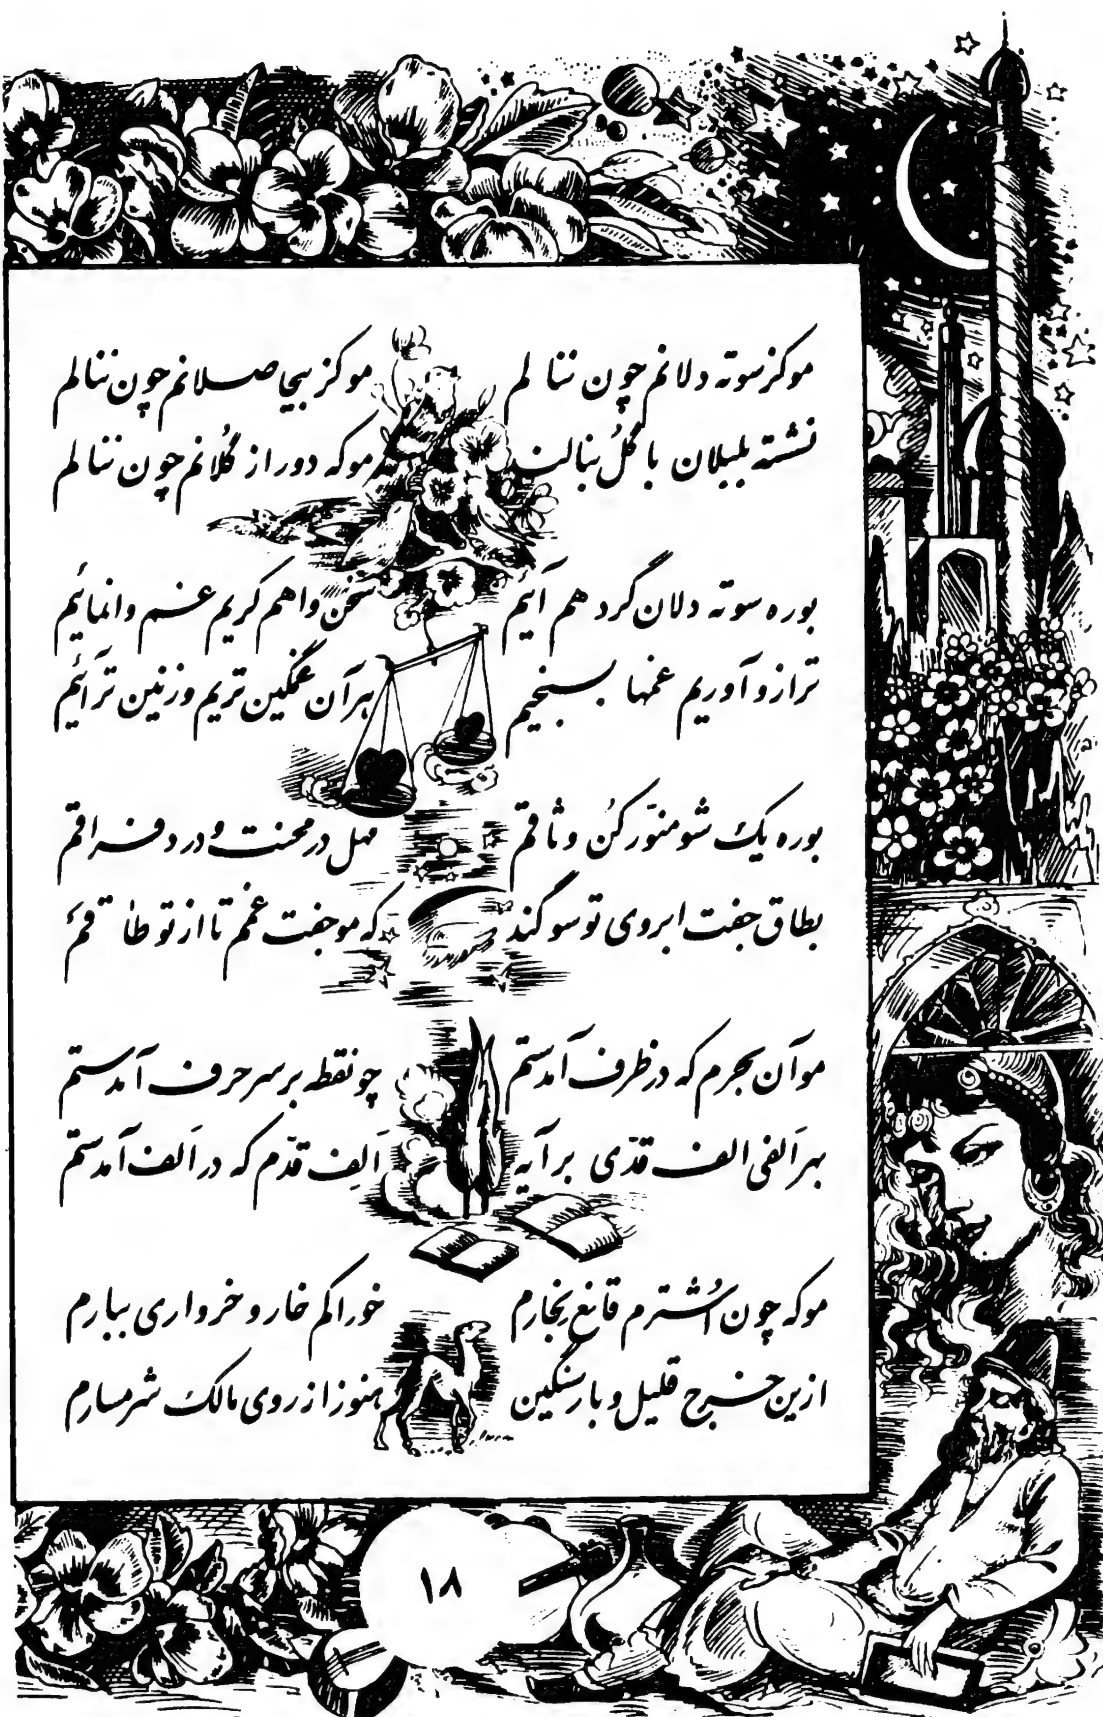 موکز سوته دلانم چون ننالم موکز بیحاصلانم چون ننالم
نشسته بلبلان با گُل بنالند موکه دور از گُلانم چون ننالم
بوره سوته دلان گرد هم آئیم سُخَن واهم کریم غم وانمائیم
ترازو آوریم غمها بسنجیم هر آن غمگین تریم وزنین ترآئیم
بوره یک شو منوّر کُن وثاقم مهل در محنت و درد فراقم
بطاق جفت ابروی تو سوگند که مو جفت غمم تا از تو طاقم
مو آن بحرم که در ظرف آمدستم چو نقطه بر سر حرف آمدستم
بهر اَلفی الف قدّی برآیه اَلِف قدّم که در اَلف آمدستم
موکه چون اُشترم قانع بخارم خوراکم خار و خرواری ببارم
ازین خرج قلیل و بار سنگین هنوز از روی مالک شرمسارم
۱۸